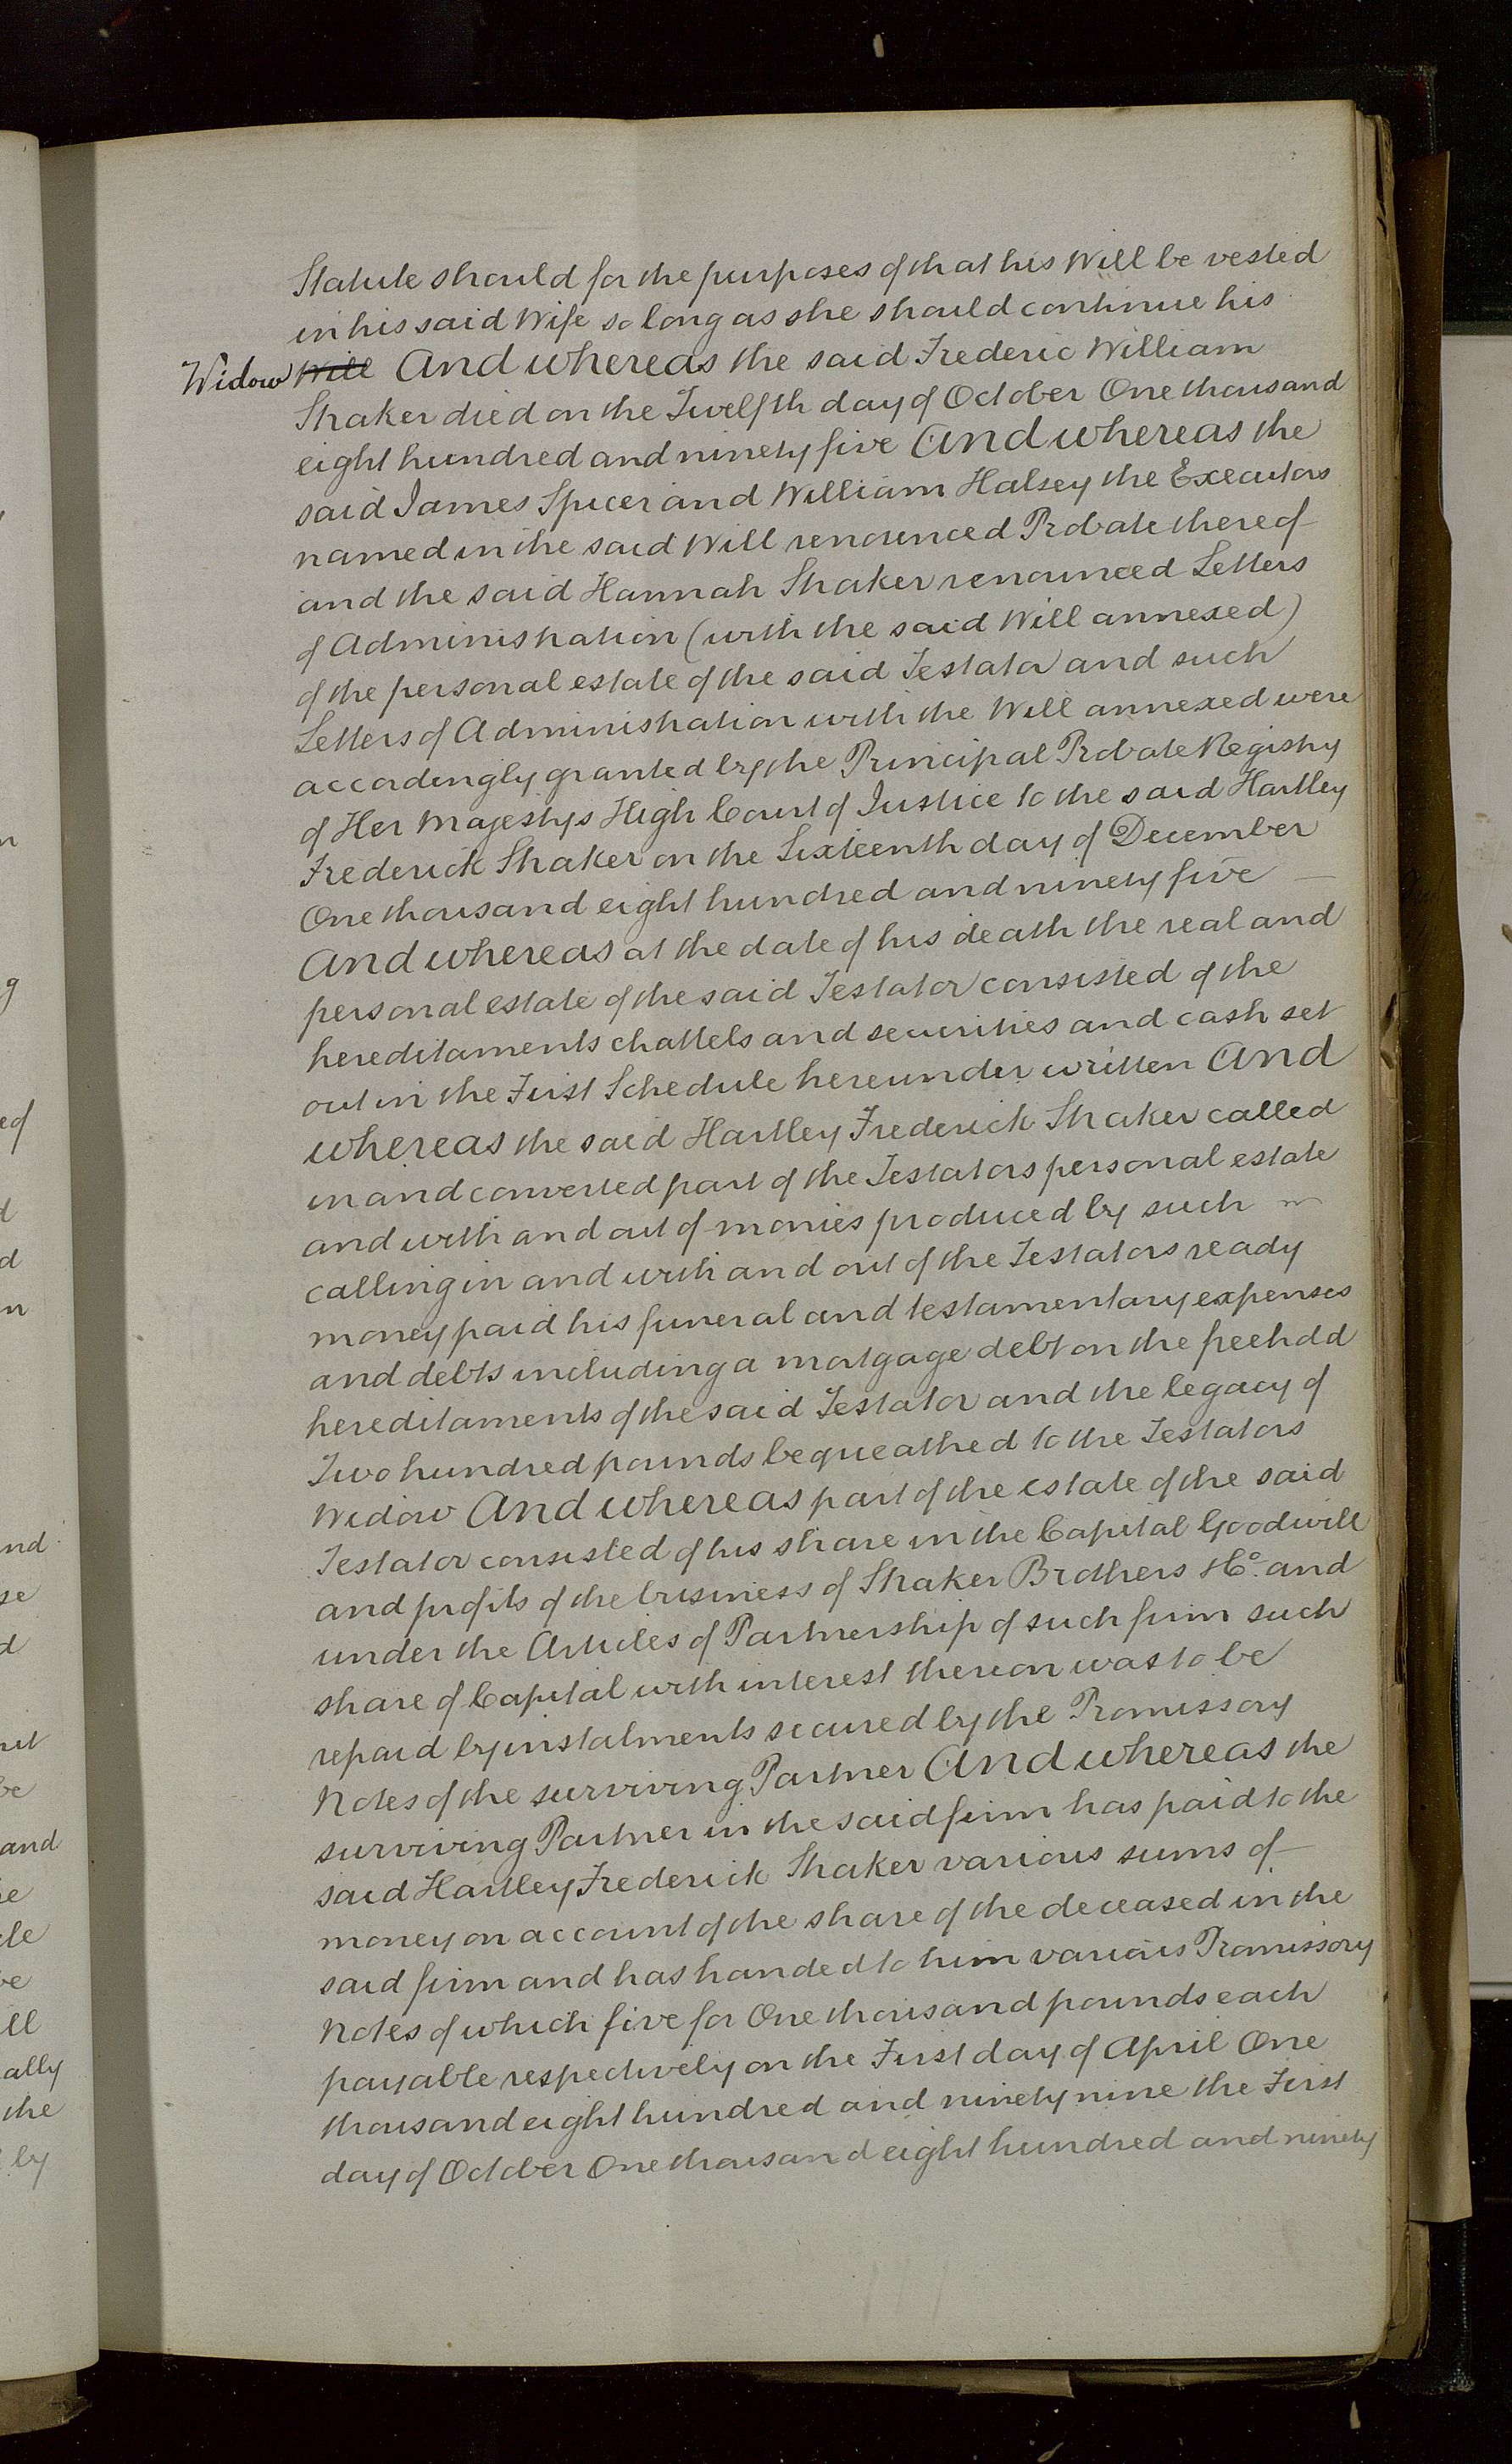 Statute should for the purposes of that his Will be vested
in his said Wife so long as she should continue his
Widow Will And whereas the said Frederic William
Shaker died on the Twelfth day of October One thousand
eight hundred and ninety five And whereas the
said James Spicer and William Halsey the Executors
named in the said Will renounced Probate thereof
and the said Hannah Shaker renounced Letters
of Administration (with the said Will annexed)
of the personal estate of the said Testator and such
Letters of Administration with the Will annexed were
accordingly granted by the Principal Probate Registry
of Her Majestys High Court of Justice to the said Hartley
Frederick Shaker on the Sixteenth day of December
One thousand eight hundred and ninety five
And whereas at the date of his death the real and
personal estate of the said Testator consisted of the
hereditaments chattels and securities and cash set
out in the First Schedule hereunder written And
whereas the said Hartley Frederick Shaker called
in and converted part of the Testators personal estate
and with and out of monies produced by such
calling in and with and out of the Testators ready
money paid his funeral and testamentary expenses
and debts including a mortgage debt on the freehold
hereditaments of the said Testator and the legacy of
Two hundred pounds bequeathed to the Testators
Widow And whereas part of the estate of the said
Testator consisted of his share in the Capital Goodwill
and profits of the business of Shaker Brothers & Co. and
under the Articles of Partnership of such firm such
share of Capital with interest thereon was to be
repaid by instalments secured by the Promissory
Notes of the surviving Partner And whereas the
surviving Partner in the said firm has paid to the
said Hartley Frederick Shaker various sums of
money on account of the share of the deceased in the
said firm and has handed to him various Promissory
Notes of which five for One thousand pounds each
payable respectively on the First day of April One
thousand eight hundred and ninety nine the First
day of October One thousand eight hundred and ninety